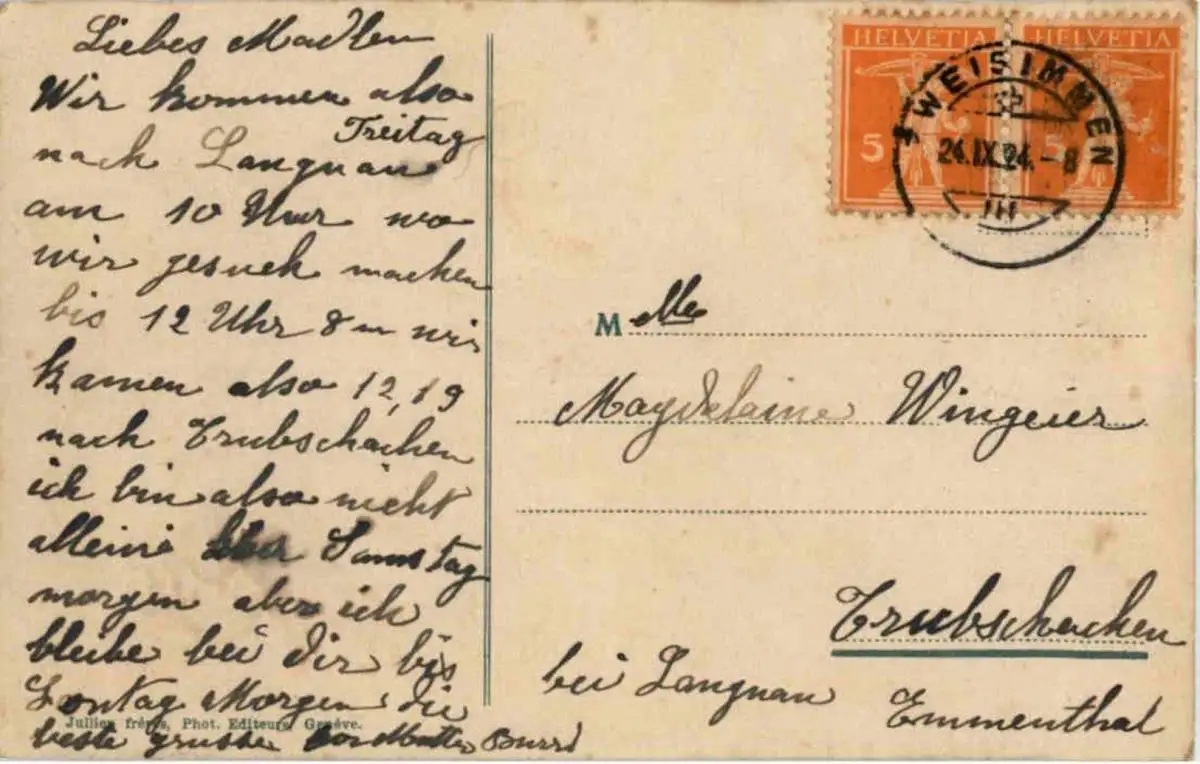 Liebes Madlen
Wir kommen also
Freitag
nach Langnau
am 10 Uhr wo
wir gesuch machen
bis 12 Uhr & wir
kamen also 12,19
nach Trubschachen
ich bin also nicht
alleine Samstag
morgen aber ich
bleibe bei dir bis
Sontag Morgen die
beste grusse Mutter Burri
Jullien frères, Phot. Editeurs, Genève.
HELVETIA HELVETIA
5 5
ZWEISIMMEN
24.IX.24.-8
III
Mlle
Magdelaine Wingeier
Trubschachen
bei Langnau
Emmenthal